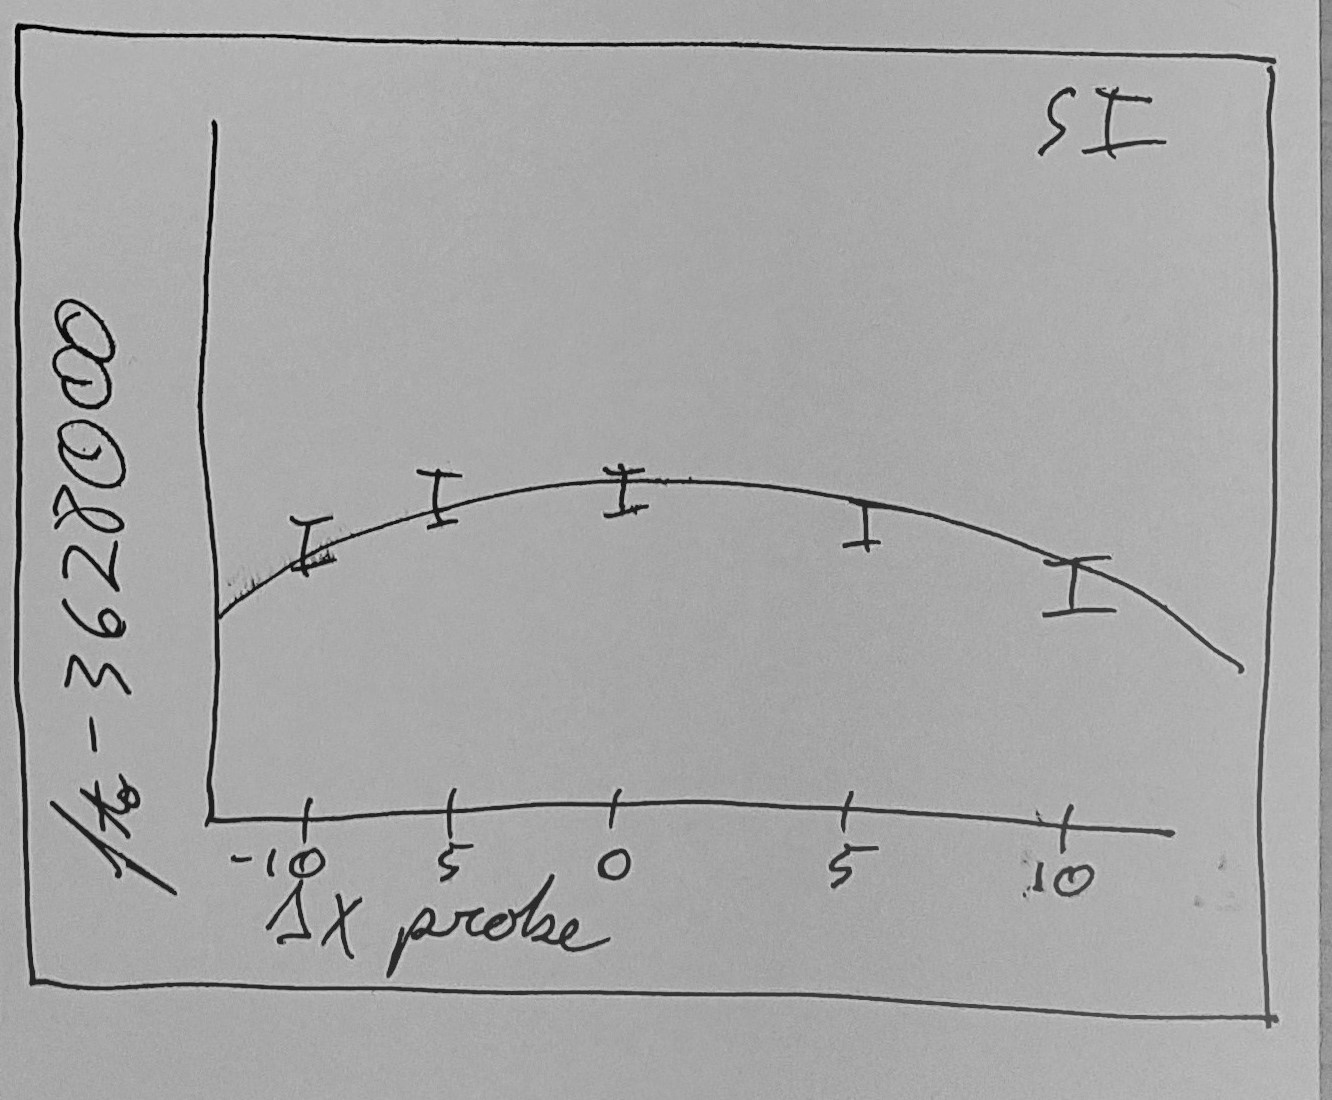 SI
-3628000
-10 5 0 5 10
ΔX probe